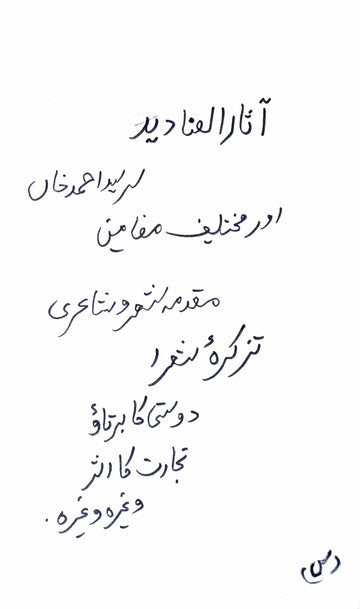 آثار الصنادید
سرسید احمد خاں
اور مختلف مضامین
مقدمہ شعر و شاعری
تذکرۂ شعرا
دوستی کا برتاؤ
تجارت کا اثر
وغیرہ وغیرہ۔